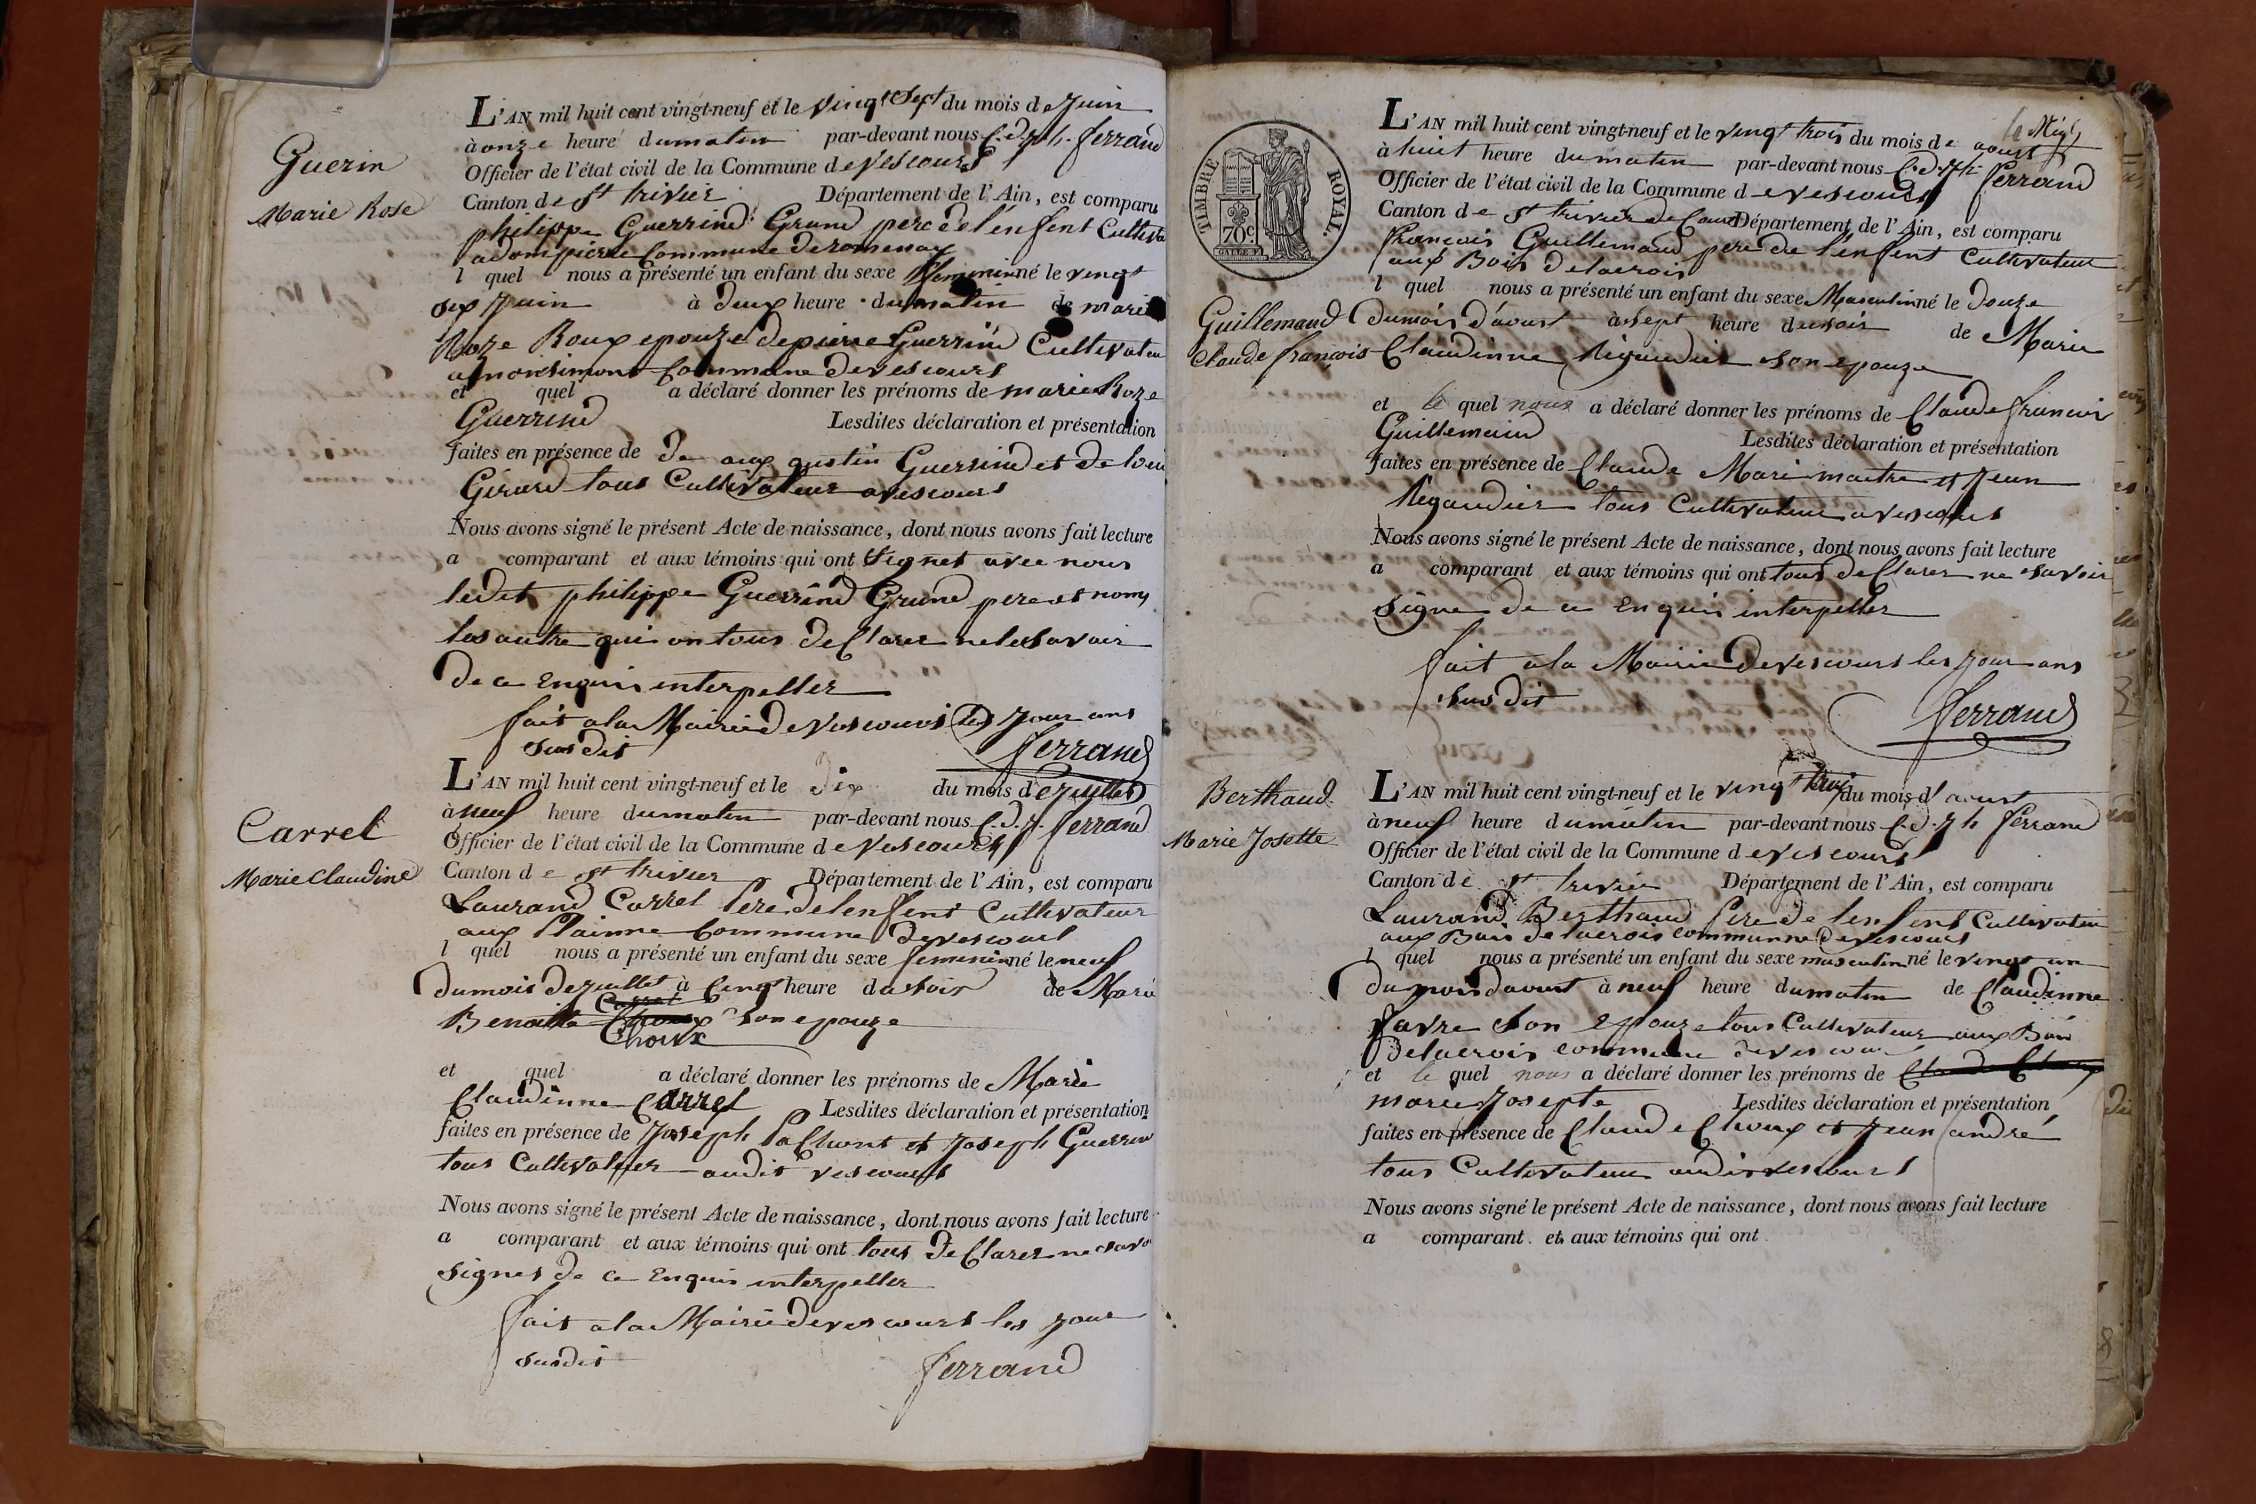 Guerin
Marie Rose
L'AN mil huit cent vingt-neuf et le vingt Sept du mois de Juin
à onze heure du matin par-devant nous C. d. Jh. ferrand
Officier de l'état civil de la Commune de vescours
Canton de St trivier Département de l'Ain, est comparu
philippe Guerrind Grand pere de l'enfent Cultiva
a dompierre Commune de romenay
l quel nous a présenté un enfant du sexe femmin né le vingt
sex Juin à deux heure du matin de marie
Roze Roux epouze de pierre Guerrind Cultivateu
a montsimont Commune de vescours
et quel a déclaré donner les prénoms de marie Roze
Guerrind Lesdites déclaration et présentation
faites en présence de De augustin Guerrind et de loui
Girard tous Cultivateur a vescours
Nous avons signé le présent Acte de naissance, dont nous avons fait lecture
a comparant et aux témoins qui ont Signet avec nous
ledit philippe Guerrind Grand pere et nomp
les autre qui on tous deClarer ne le savoir
de ce Enquis interpeller
fait a la Mairie de vescours les Jour ans
sus dit
ferrand
Carrel
Marie Claudine
L'AN mil huit cent vingt-neuf et le Dix du mois de Juillet
à neuf heure du matin par-devant nous C. d. J. ferrand
Officier de l'état civil de la Commune de vescours
Canton de St trivier Département de l'Ain, est comparu
Laurand Carrel Pere de lenfent Cultivateur
aux Plainne Commune de vescours
l quel nous a présenté un enfant du sexe feminin né le neuf
du mois de Juillet à Cinq heure du soir de Marie
Carrel
Benoite Choux son epouze
Choux
et quel a déclaré donner les prénoms de Marie
Claudinne Carrel Lesdites déclaration et présentation
faites en présence de Joseph PoChont et Joseph Guerrin
tous Cultivateur audit vescours
Nous avons signé le présent Acte de naissance, dont nous avons fait lecture
a comparant et aux témoins qui ont tous deClarer ne savo
signer de ce Enquis interpeller
fait a la Mairie de vescours les Jour
susdit
ferrand
TIMBRE ROYAL.
70c
Guillemaud
Claude françois
L'AN mil huit cent vingt-neuf et le vingt trois du mois de aoust
à huit heure du matin par-devant nous C. d. Jh. ferrand
Officier de l'état civil de la Commune de vescours
Canton de St trivier de Courte Département de l'Ain, est comparu
françois Guillemaud pere de l'enfent Cultivateur
aux Bois de lacrois
l quel nous a présenté un enfant du sexe Masculin né le Douze
du mois d'aoust à sept heure du soir de Marie
Claudinne Rigaudier son epouze
et le quel nous a déclaré donner les prénoms de Claude francois
Guillemaud Lesdites déclaration et présentation
faites en présence de Claude Marimaitre et Jean
Regaudier tous Cultivateur a vescours
Nous avons signé le présent Acte de naissance, dont nous avons fait lecture
a comparant et aux témoins qui ont tous deClarer ne savoir
signe de ce Enquis interpeller
fait a la Mairie de vescours les Jour ans
sus dit
ferrand
Berthaud
Marie Josette
L'AN mil huit cent vingt-neuf et le vingt trois du mois d'aoust
à neuf heure du matin par-devant nous C. d. Jh ferrand
Officier de l'état civil de la Commune de vescours
Canton de St trivier Département de l'Ain, est comparu
Laurand Berthaud Pere de lenfent Cultivateur
aux Bois de lacrois commune de vescours
l quel nous a présenté un enfant du sexe masculin né le vingt un
du mois daoust à neuf heure du matin de Claudinne
favre son Epouze tous Cultivateur aux Bois
delacrois commune de vescour
et le quel nous a déclaré donner les prénoms de
marie Josepte Lesdites déclaration et présentation
faites en présence de Claude Choux et Jean andré
tous Cultivateur audit vescours
Nous avons signé le présent Acte de naissance, dont nous avons fait lecture
a comparant et aux témoins qui ont